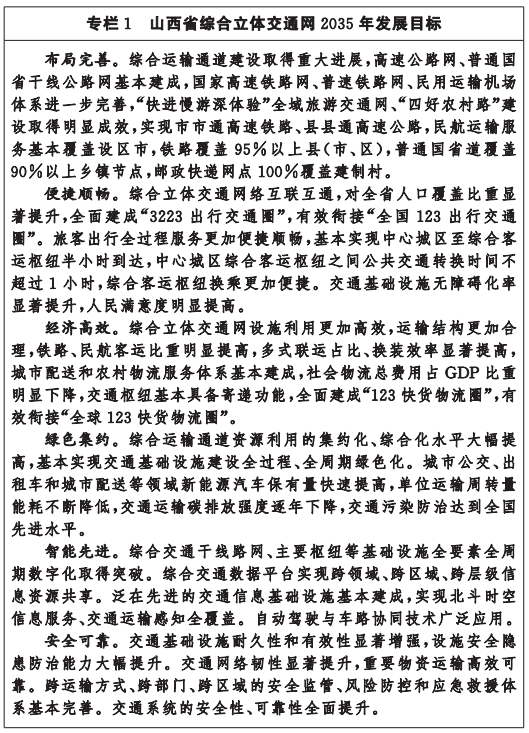 专栏1 山西省综合立体交通网2035年发展目标
布局完善。综合运输通道建设取得重大进展,高速公路网、普通国
省干线公路网基本建成,国家高速铁路网、普速铁路网、民用运输机场
体系进一步完善,“快进慢游深体验”全域旅游交通网、“四好农村路”建
设取得明显成效,实现市市通高速铁路、县县通高速公路,民航运输服
务基本覆盖设区市,铁路覆盖95%以上县(市、区),普通国省道覆盖
90%以上乡镇节点,邮政快递网点100%覆盖建制村。
便捷顺畅。综合立体交通网络互联互通,对全省人口覆盖比重显
著提升,全面建成“3223出行交通圈”,有效衔接“全国123出行交通
圈”。旅客出行全过程服务更加便捷顺畅,基本实现中心城区至综合客
运枢纽半小时到达,中心城区综合客运枢纽之间公共交通转换时间不
超过1小时,综合客运枢纽换乘更加便捷。交通基础设施无障碍化率
显著提升,人民满意度明显提高。
经济高效。综合立体交通网设施利用更加高效,运输结构更加合
理,铁路、民航客运比重明显提高,多式联运占比、换装效率显著提高,
城市配送和农村物流服务体系基本建成,社会物流总费用占GDP比重
明显下降,交通枢纽基本具备寄递功能,全面建成“123快货物流圈”,有
效衔接“全球123快货物流圈”。
绿色集约。综合运输通道资源利用的集约化、综合化水平大幅提
高,基本实现交通基础设施建设全过程、全周期绿色化。城市公交、出
租车和城市配送等领域新能源汽车保有量快速提高,单位运输周转量
能耗不断降低,交通运输碳排放强度逐年下降,交通污染防治达到全国
先进水平。
智能先进。综合交通干线路网、主要枢纽等基础设施全要素全周
期数字化取得突破。综合交通数据平台实现跨领域、跨区域、跨层级信
息资源共享。泛在先进的交通信息基础设施基本建成,实现北斗时空
信息服务、交通运输感知全覆盖。自动驾驶与车路协同技术广泛应用。
安全可靠。交通基础设施耐久性和有效性显著增强,设施安全隐
患防治能力大幅提升。交通网络韧性显著提升,重要物资运输高效可
靠。跨运输方式、跨部门、跨区域的安全监管、风险防控和应急救援体
系基本完善。交通系统的安全性、可靠性全面提升。